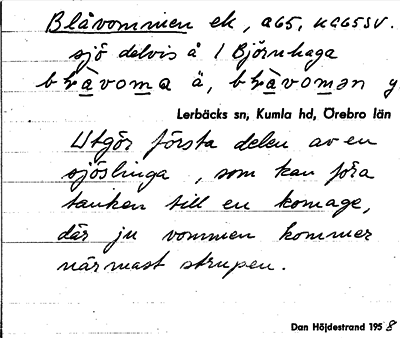 Blåvommen ek, a65, na65sv.
sjö delvis å 1 Björnhaga
bràvoma ä, bràvomən y
Lerbäcks sn, Kumla hd, Örebro län
Utgör första delen av en
sjöslinga, som kan föra
tanken till en komage,
där ju vommen kommer
närmast strupen.
Dan Höjdestrand 1958